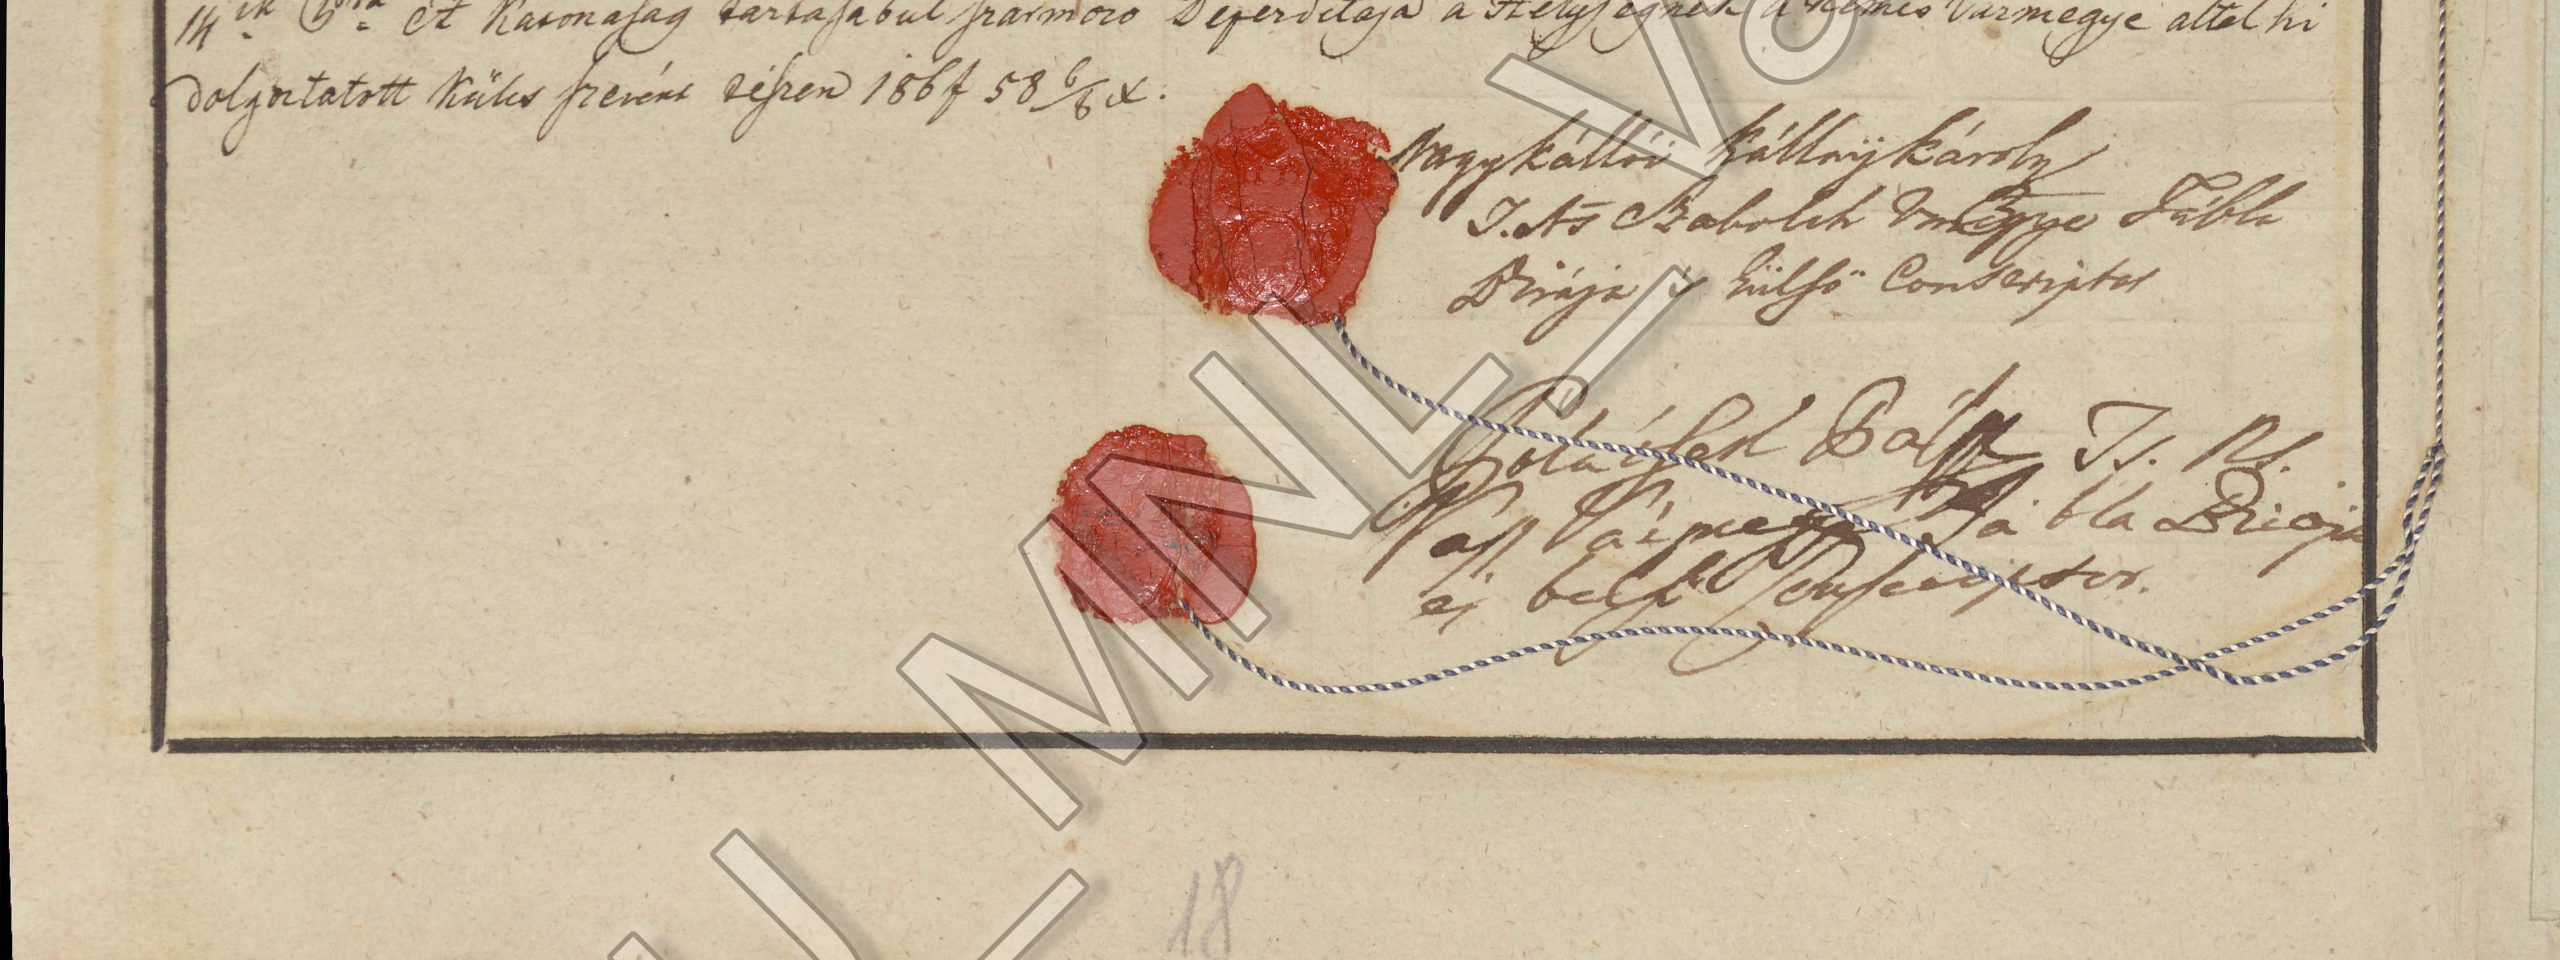 14ik A Katonaság tartásábul szármozo Deperditája a Helységnek a Nemes Vármegye által ki
dolgoztatott Kúlcs szerént tészen 186f 58 6/8 x.
Nagykállói Kállaÿ károly
T. Ns Szabolch Vmegye Tábla
Birája 's külső Conscriptor
Bálá Ts. Ns.
Vass Vármegye Tábla Birája
és belső Conscriptor.
MNL
18